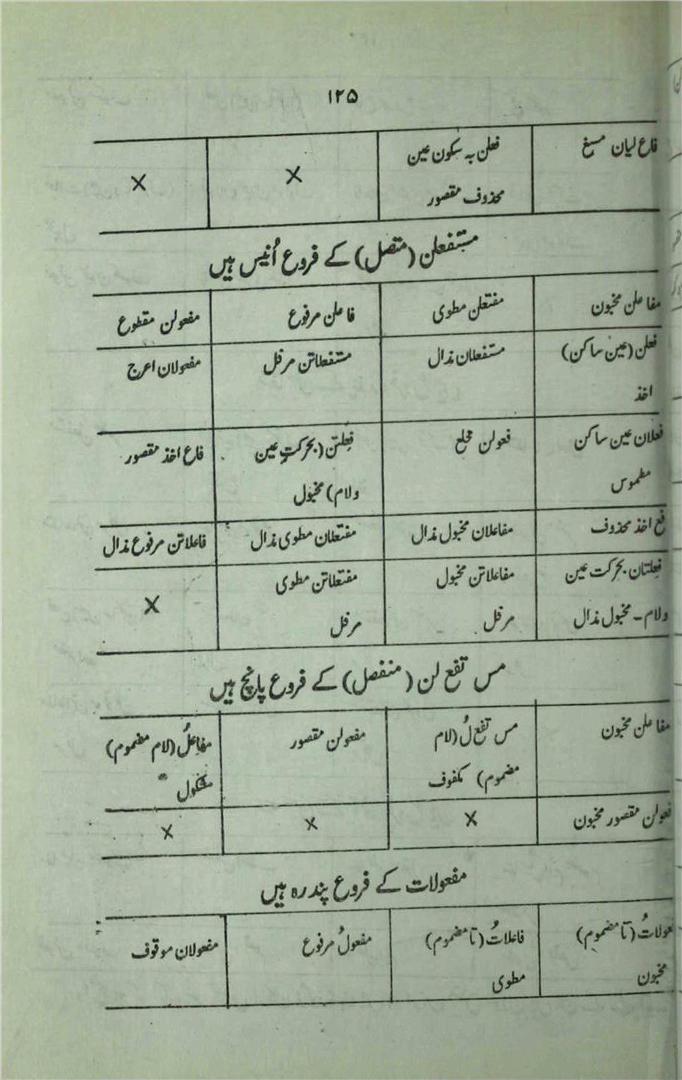 ۱۲۵
فاع لیان مسبغ
فعلن بہ سکون عین
محذوف مقصور
×
×
مستفعلن (متصل) کے فروع اُنیس ہیں
مفاعلن مخبون
مفتعلن مطوی
فاعلن مرفوع
مفعولن مقطوع
فعلن (عین ساکن)
اخذ
مستفعلان مذال
مستفعلاتن مرفل
مفعولان اعرج
فعلان عین ساکن
مطموس
فعولن مخلع
فَعِلَتن (بحرکت عین
ولام) مخبول
فاع اخذ مقصور
فع اخذ محذوف
مفاعلان مخبول مذال
مفتعلان مطوی مذال
فاعلاتن مرفوع مذال
فَعِلَتان بحرکت عین
ولام - مخبول مذال
مفاعلاتن مخبول
مرفل
مفتعلاتن مطوی
مرفل
×
مس تفع لن (منفصل) کے فروع پانچ ہیں
مفاعلن مخبون
مس تفع لُ (لام
مضموم) مکفوف
مفعولن مقصور
مفاعلُ (لام مضموم)
مشکول
فعولن مقصور مخبون
×
×
×
مفعولات کے فروع پندرہ ہیں
عولاتُ (تا مضموم)
مخبون
فاعلاتُ (تا مضموم)
مطوی
مفعولُ مرفوع
مفعولان موقوف